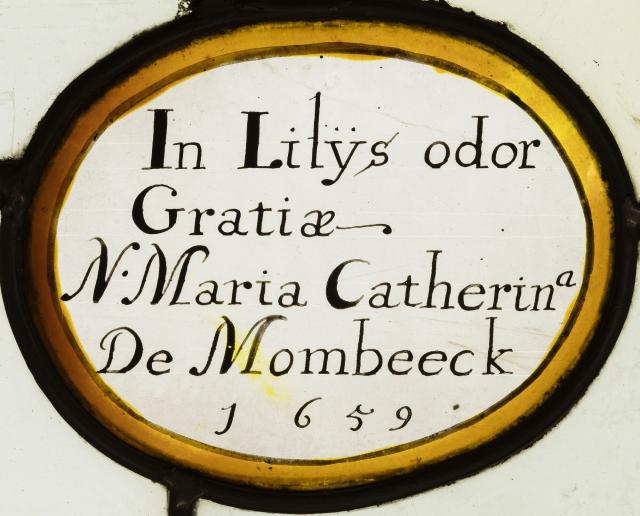 In Lilÿs odor
Gratiæ
N. Maria Catherinᵃ
De Mombeeck
1659